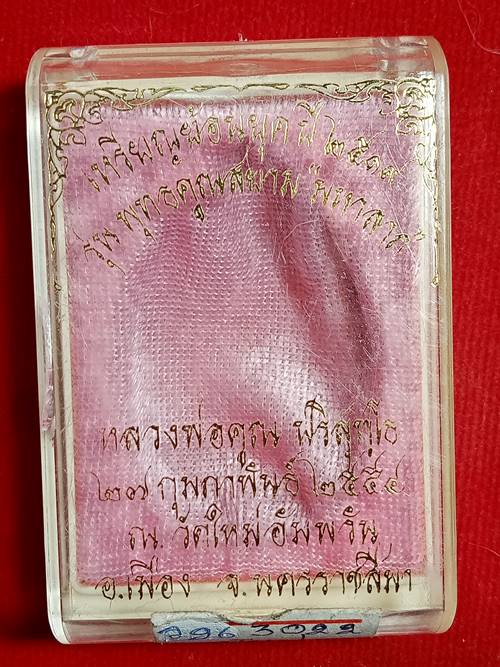 เหรียญย้อนยุค ปี ๒๕๑๙
รุ่น พุทธคูณสยาม "มหาลาภ"
หลวงพ่อคูณ ปริสุทฺโธ
๒๗ กุมภาพันธ์ ๒๕๕๔
ณ. วัดใหม่อัมพวัน
อ.เมือง จ.นครราชสีมา